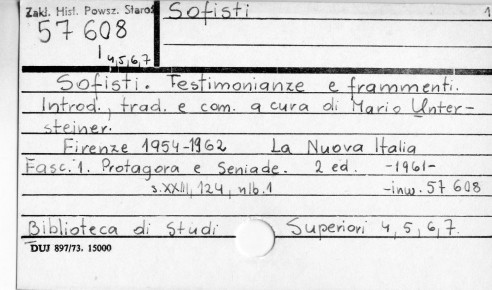 Zakł. Hist. Powsz. Staroż
Sofisti 1
57 608
4,5,6,7
Sofisti. Testimonianze e frammenti.
Introd., trad. e com. a cura di Mario Unter-
steiner.
Firenze 1954-1962 La Nuova Italia
Fasc. 1. Protagora e Seniade. 2 ed. -1961-
s. XXIII, 124, nlb. 1 -inw. 57 608
Biblioteca di Studi Superiori 4, 5, 6, 7.
DUJ 897/73. 15000